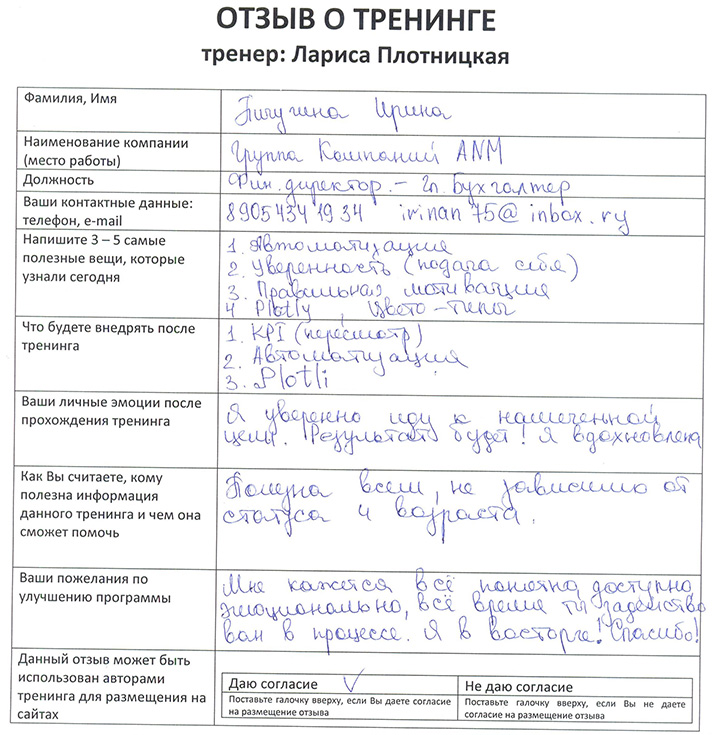 ОТЗЫВ О ТРЕНИНГЕ
тренер: Лариса Плотницкая
Фамилия, Имя
Пичугина Ирина
Наименование компании
(место работы)
Группа Компаний ANM
Должность
Фин. директор. – Гл. Бухгалтер
Ваши контактные данные:
телефон, e-mail
8905 434 19 34 irinan75@inbox.ry
Напишите 3 – 5 самые
полезные вещи, которые
узнали сегодня
1. Автоматизация
2. Уверенность (подача себя)
3. Правильная мотивация
4 Plotly, Цвето-типы
Что будете внедрять после
тренинга
1. KPI (пересмотр)
2. Автоматизация
3. Plotli
Ваши личные эмоции после
прохождения тренинга
Я уверенно иду к намеченной
цели. Результат будет! Я вдохновлена
Как Вы считаете, кому
полезна информация
данного тренинга и чем она
сможет помочь
Полезна всем, не зависимо от
статуса и возраста.
Ваши пожелания по
улучшению программы
Мне кажется всё понятна, доступна,
эмоционально, всё время ты задейство
ван в процессе. Я в восторге! Спасибо!
Данный отзыв может быть
использован авторами
тренинга для размещения на
сайтах
Даю согласие
Поставьте галочку вверху, если Вы даете согласие
на размещение отзыва
Не даю согласие
Поставьте галочку вверху, если Вы не даете
согласие на размещение отзыва